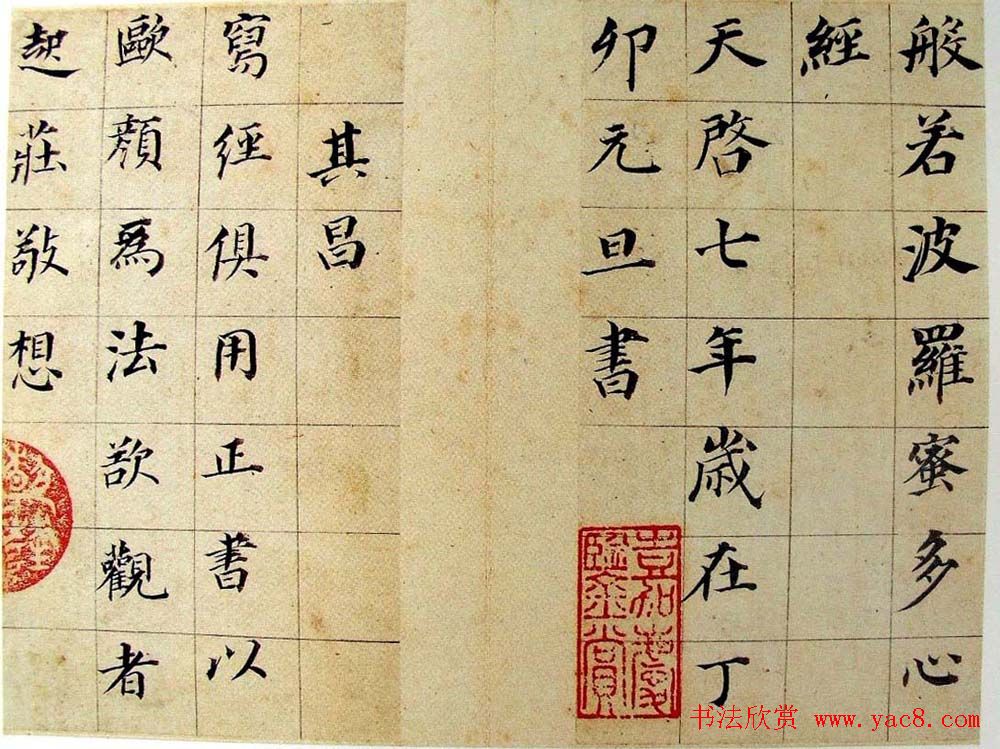 般若波羅蜜多心
經
天啓七年歲在丁
卯元旦書
其昌
寫經俱用正書以
歐顏爲法欲觀者
起莊敬想
嘉慶
鑒賞
书法欣赏 www.yac8.com